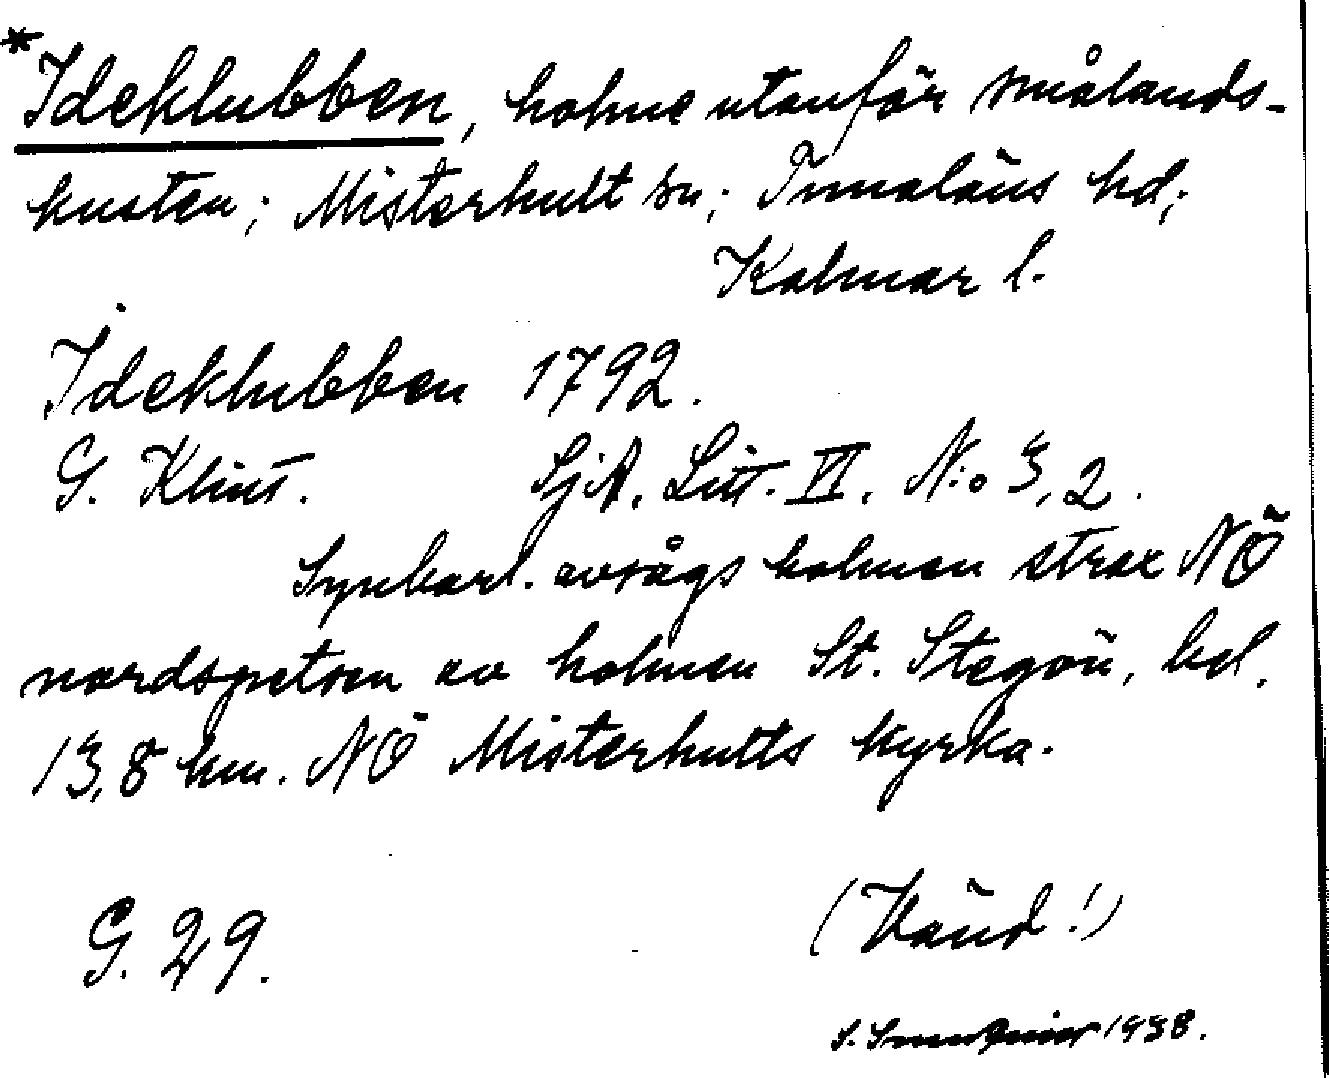 *Ideklubben, holme utanför smålands-
kusten; Misterhult sn; Tunaläns hd;
Kalmar l.
Ideklubben 1792.
G. Klint. SjA. Litt. VI. N:o 3, 2.
Synbarl. avsågs holmen strax NÖ
nordspetsen av holmen St. Stegön, bel.
13,8 km. NÖ Misterhults kyrka.
G. 29. (Vänd!)
S. 1938.